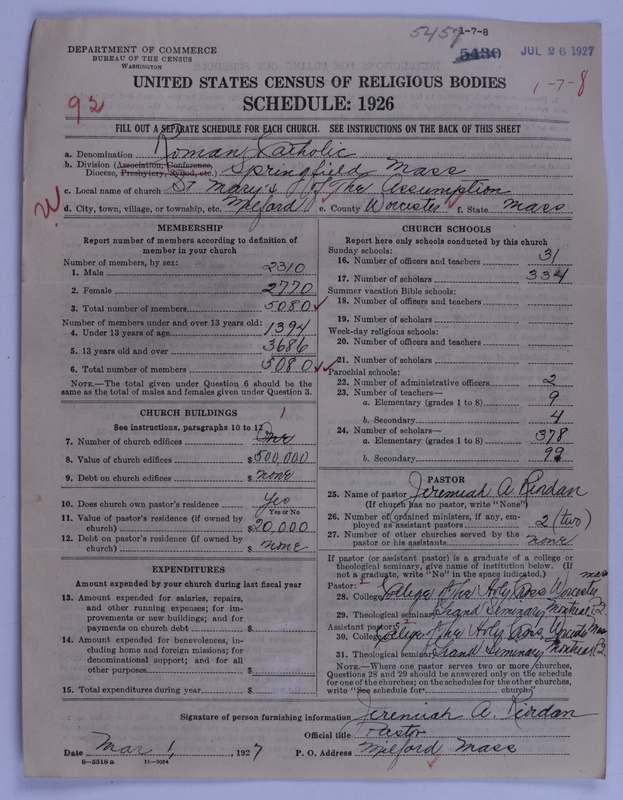 5457 1-7-8
5430 JUL 26 1927
DEPARTMENT OF COMMERCE
BUREAU OF THE CENSUS
WASHINGTON
1-7-8
UNITED STATES CENSUS OF RELIGIOUS BODIES
SCHEDULE: 1926
92
FILL OUT A SEPARATE SCHEDULE FOR EACH CHURCH. SEE INSTRUCTIONS ON THE BACK OF THIS SHEET
a. Denomination Roman Catholic
b. Division (Association, Conference, Diocese, Presbytery, Synod, etc.) Springfield Mass
c. Local name of church St Mary's of The Assumption
d. City, town, village, or township, etc. Milford e. County Worcester f. State Mass
MEMBERSHIP
Report number of members according to definition of
member in your church
Number of members, by sex:
1. Male 2310
2. Female 2770
3. Total number of members 5080
Number of members under and over 13 years old:
4. Under 13 years of age 1394
5. 13 years old and over 3686
6. Total number of members 5080
NOTE.—The total given under Question 6 should be the
same as the total of males and females given under Question 3.
CHURCH BUILDINGS
See instructions, paragraphs 10 to 12
1
7. Number of church edifices One
8. Value of church edifices $500,000
9. Debt on church edifices $ none
10. Does church own pastor's residence Yes
Yes or No
11. Value of pastor's residence (if owned by
church) $20,000
12. Debt on pastor's residence (if owned by
church) $ none
EXPENDITURES
Amount expended by your church during last fiscal year
13. Amount expended for salaries, repairs,
and other running expenses; for im-
provements or new buildings; and for
payments on church debt $
14. Amount expended for benevolences, in-
cluding home and foreign missions; for
denominational support; and for all
other purposes $
15. Total expenditures during year $
CHURCH SCHOOLS
Report here only schools conducted by this church
Sunday schools:
16. Number of officers and teachers 31
17. Number of scholars 334
Summer vacation Bible schools:
18. Number of officers and teachers
19. Number of scholars
Week-day religious schools:
20. Number of officers and teachers
21. Number of scholars
Parochial schools:
22. Number of administrative officers 2
23. Number of teachers—
a. Elementary (grades 1 to 8) 9
b. Secondary 4
24. Number of scholars—
a. Elementary (grades 1 to 8) 378
b. Secondary 92
PASTOR
25. Name of pastor Jeremiah A Riordan
(If church has no pastor, write "None")
26. Number of ordained ministers, if any, em-
ployed as assistant pastors 2 (two)
27. Number of other churches served by the
pastor or his assistants none
If pastor (or assistant pastor) is a graduate of a college or
theological seminary, give name of institution below. (If
not a graduate, write "No" in the space indicated.)
Pastor:
28. College College of The Holy Cross Worcester Mass
29. Theological seminary Grand Seminary Montreal
Assistant pastor: 2
30. College College of The Holy Cross Worcester Mass
31. Theological seminary Grand Seminary Montreal
NOTE.—Where one pastor serves two or more churches,
Questions 28 and 29 should be answered only on the schedule
for one of the churches; on the schedules for the other churches,
write "See schedule for church."
Signature of person furnishing information Jeremiah A. Riordan
Official title Pastor
Date Mar 1, 1927 P. O. Address Milford Mass
8—5518a 11—9554